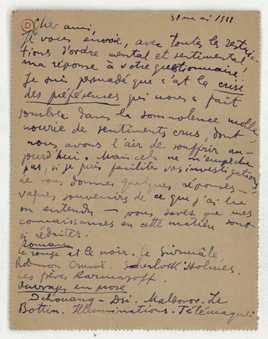 31 mai 1921
Cher ami,
Je vous envoie, avec toutes les restric-
tions d'ordre mental et sentimental,
ma réponse à votre questionnaire.
Je suis persuadé que c'est la crise
des préférences qui nous a fait
sombrer dans la somnolence molle
nourrie de sentiments crus, dont
nous avons l'air de souffrir au-
jourd'hui. Mais cela ne m'empêche
pas, si je puis faciliter vos investigations
de vous donner quelques réponses —
vagues souvenirs de ce que j'ai lu
ou entendu — vous savez que mes
connaissances en cette matière sont
Romans
Le rouge et le noir. Je
Robinson Crusoé. Sherlock Holmès.
Les frères Karamazoff.
Ouvrages en prose
Dchouang-Dsi. Maldoror. Le
Bottin. Illuminations. Télémaque